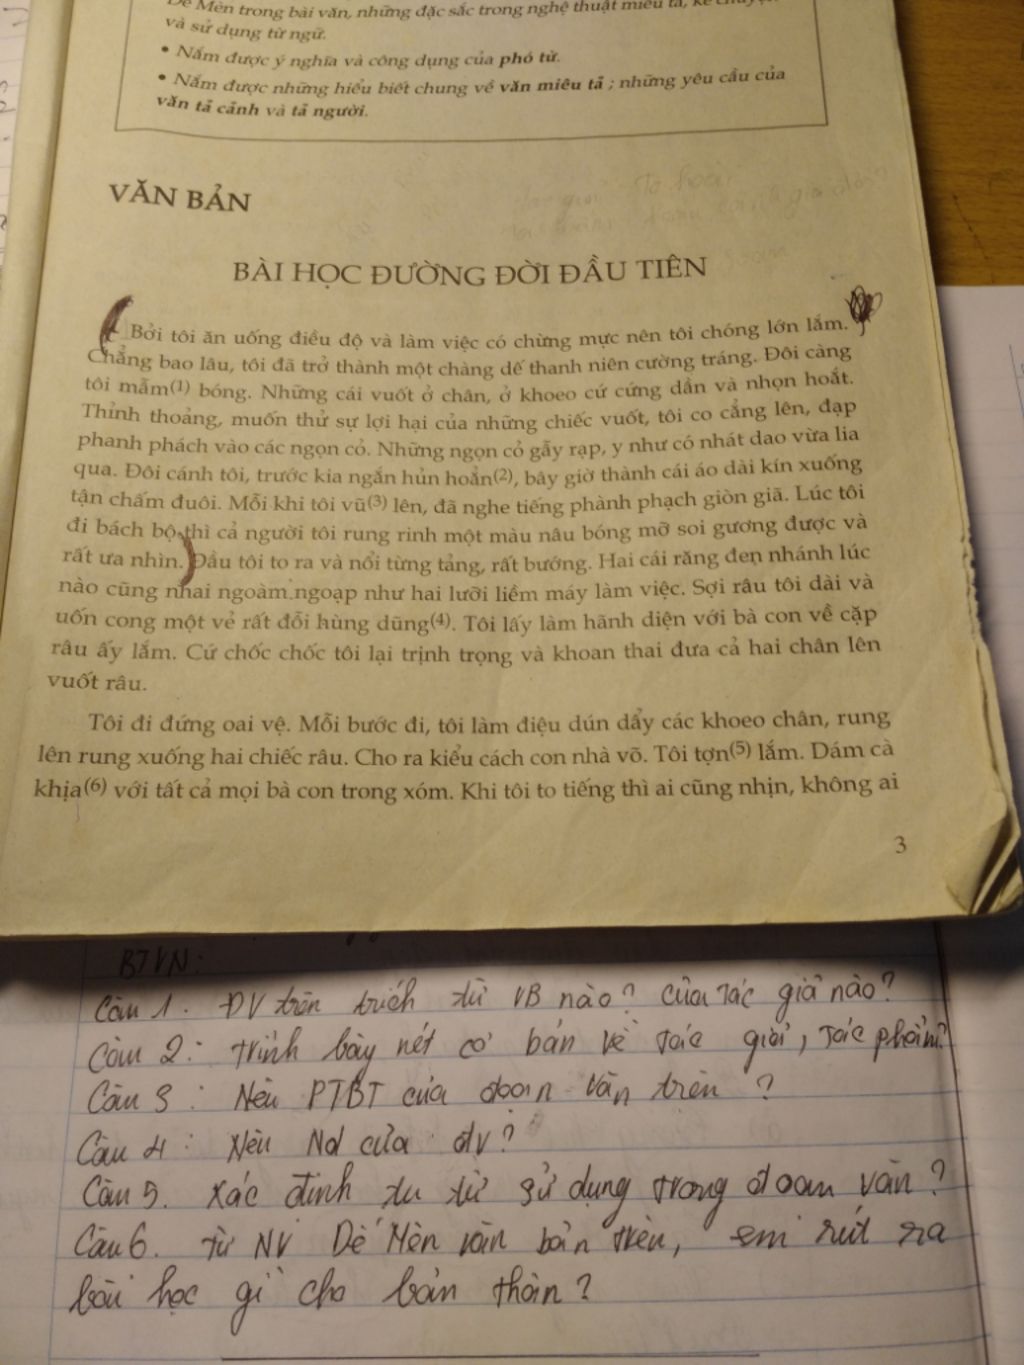 Dế Mèn trong bài văn, những đặc sắc trong nghệ thuật miêu tả, kể chuyện
và sử dụng từ ngữ.
• Nắm được ý nghĩa và công dụng của phó từ.
• Nắm được những hiểu biết chung về văn miêu tả ; những yêu cầu của
văn tả cảnh và tả người.
VĂN BẢN
BÀI HỌC ĐƯỜNG ĐỜI ĐẦU TIÊN
Bởi tôi ăn uống điều độ và làm việc có chừng mực nên tôi chóng lớn lắm.
Chẳng bao lâu, tôi đã trở thành một chàng dế thanh niên cường tráng. Đôi càng
tôi mẫm(1) bóng. Những cái vuốt ở chân, ở khoeo cứ cứng dần và nhọn hoắt.
Thỉnh thoảng, muốn thử sự lợi hại của những chiếc vuốt, tôi co cẳng lên, đạp
phanh phách vào các ngọn cỏ. Những ngọn cỏ gẫy rạp, y như có nhát dao vừa lia
qua. Đôi cánh tôi, trước kia ngắn hủn hoẳn(2), bây giờ thành cái áo dài kín xuống
tận chấm đuôi. Mỗi khi tôi vũ(3) lên, đã nghe tiếng phành phạch giòn giã. Lúc tôi
đi bách bộ thì cả người tôi rung rinh một màu nâu bóng mỡ soi gương được và
rất ưa nhìn. Đầu tôi to ra và nổi từng tảng, rất bướng. Hai cái răng đen nhánh lúc
nào cũng nhai ngoàm ngoạp như hai lưỡi liềm máy làm việc. Sợi râu tôi dài và
uốn cong một vẻ rất đỗi hùng dũng(4). Tôi lấy làm hãnh diện với bà con về cặp
râu ấy lắm. Cứ chốc chốc tôi lại trịnh trọng và khoan thai đưa cả hai chân lên
vuốt râu.
Tôi đi đứng oai vệ. Mỗi bước đi, tôi làm điệu dún dẩy các khoeo chân, rung
lên rung xuống hai chiếc râu. Cho ra kiểu cách con nhà võ. Tôi tợn(5) lắm. Dám cà
khịa(6) với tất cả mọi bà con trong xóm. Khi tôi to tiếng thì ai cũng nhịn, không ai
3
BTVN:
Câu 1. ĐV trên trích từ VB nào? của tác giả nào?
Câu 2: trình bày nét cơ bản về tác giả, tác phẩm?
Câu 3 : Nêu PTBT của đoạn văn trên ?
Câu 4 : Nêu Nd của đv?
Câu 5. Xác định từ từ sử dụng trong đoạn văn ?
Câu 6. từ NV Dế Mèn văn bản trên, em rút ra
bài học gì cho bản thân ?